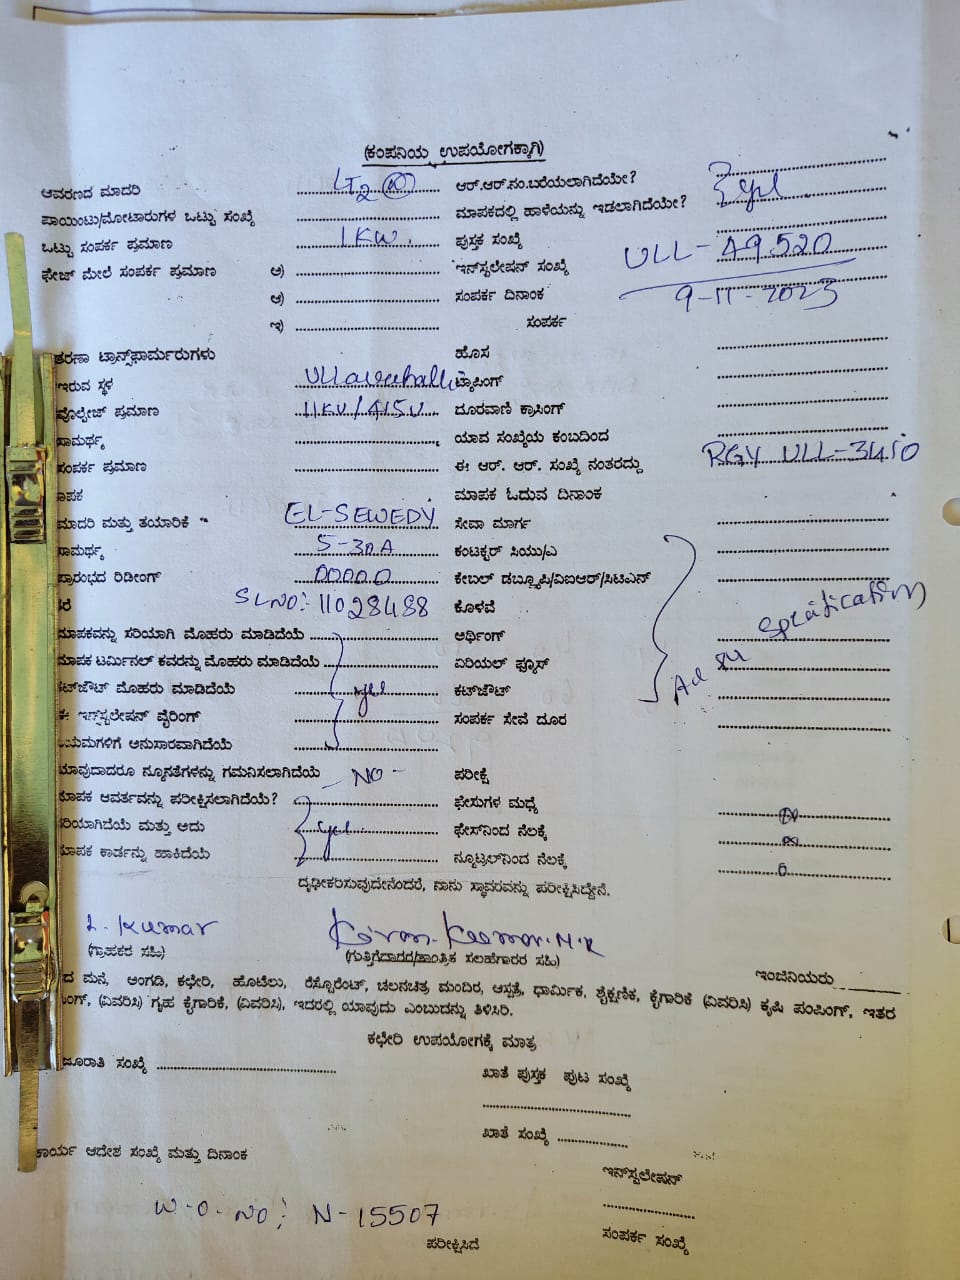 (ಕಂಪನಿಯ ಉಪಯೋಗಕ್ಕಾಗಿ)
ಆವರಣದ ಮಾದರಿ LT2 (a) ಆರ್.ಆರ್.ನಂ.ಬರೆಯಲಾಗಿದೆಯೇ?
ಪಾಯಿಂಟು/ಮೋಟಾರುಗಳ ಒಟ್ಟು ಸಂಖ್ಯೆ ಮಾಪಕದಲ್ಲಿ ಹಾಳೆಯನ್ನು ಇಡಲಾಗಿದೆಯೇ? yes
ಒಟ್ಟು ಸಂಪರ್ಕ ಪ್ರಮಾಣ 1KW. ಪುಸ್ತಕ ಸಂಖ್ಯೆ
ಫೇಜ್ ಮೇಲೆ ಸಂಪರ್ಕ ಪ್ರಮಾಣ ಅ) ಇನ್‌ಸ್ಟಲೇಷನ್ ಸಂಖ್ಯೆ ULL-49520
ಆ) ಸಂಪರ್ಕ ದಿನಾಂಕ 9-11-2023
ಇ) ಸಂಪರ್ಕ
ತರಣಾ ಟ್ರಾನ್ಸ್‌ಫಾರ್ಮರುಗಳು ಹೊಸ
ಇರುವ ಸ್ಥಳ ಟ್ಯಾಪಿಂಗ್
ವೊಲ್ಟೇಜ್ ಪ್ರಮಾಣ 11KV/415V ದೂರವಾಣಿ ಕ್ರಾಸಿಂಗ್
ಸಾಮರ್ಥ್ಯ ಯಾವ ಸಂಖ್ಯೆಯ ಕಂಬದಿಂದ
ಸಂಪರ್ಕ ಪ್ರಮಾಣ ಈ ಆರ್. ಆರ್. ಸಂಖ್ಯೆ ನಂತರದ್ದು RGY ULL-3410
ಾಪಕ ಮಾಪಕ ಓದುವ ದಿನಾಂಕ
ಮಾದರಿ ಮತ್ತು ತಯಾರಿಕೆ EL-SEWEDY ಸೇವಾ ಮಾರ್ಗ
ಸಾಮರ್ಥ್ಯ 5-30A ಕಂಟಕ್ಟರ್ ಸಿಯು/ಎ
ಪ್ರಾರಂಭದ ರಿಡೀಂಗ್ 00000 ಕೇಬಲ್ ಡಬ್ಲ್ಯೂಪಿ/ವಿಐಆರ್/ಸಿಟಿಎನ್
SLNO: 11028488 ಕೊಳವೆ
ಮಾಪಕವನ್ನು ಸರಿಯಾಗಿ ಮೊಹರು ಮಾಡಿದೆಯೆ ಅರ್ಥಿಂಗ್
ಮಾಪಕ ಟರ್ಮಿನಲ್ ಕವರನ್ನು ಮೊಹರು ಮಾಡಿದೆಯೆ ಏರಿಯಲ್ ಫ್ಯೂಸ್
ಕಟ್‌ಔಟ್ ಮೊಹರು ಮಾಡಿದೆಯೆ yes ಕಟ್‌ಔಟ್
ಈ ಇನ್‌ಸ್ಟಲೇಷನ್ ವೈರಿಂಗ್ ಸಂಪರ್ಕ ಸೇವೆ ದೂರ
ಯಮಗಳಿಗೆ ಅನುಸಾರವಾಗಿದೆಯೆ
ಯಾವುದಾದರೂ ನ್ಯೂನತೆಗಳನ್ನು ಗಮನಿಸಲಾಗಿದೆಯೆ - NO - ಪರೀಕ್ಷೆ
ಮಾಪಕ ಆವರ್ತವನ್ನು ಪರೀಕ್ಷಿಸಲಾಗಿದೆಯೆ? ಫೇಸುಗಳ ಮಧ್ಯೆ
ರಿಯಾಗಿದೆಯೆ ಮತ್ತು ಅದು yes ಫೇಸ್‌ನಿಂದ ನೆಲಕ್ಕೆ
ಮಾಪಕ ಕಾರ್ಡನ್ನು ಹಾಕಿದೆಯೆ ನ್ಯೂಟ್ರಲ್‌ನಿಂದ ನೆಲಕ್ಕೆ
ದೃಢೀಕರಿಸುವುದೇನೆಂದರೆ, ನಾನು ಸ್ಥಾವರವನ್ನು ಪರೀಕ್ಷಿಸಿದ್ದೇನೆ.
L. Kumar Kiran Kumar. N. R
(ಗ್ರಾಹಕರ ಸಹಿ) (ಗುತ್ತಿಗೆದಾರರ/ತಾಂತ್ರಿಕ ಸಲಹೆಗಾರರ ಸಹಿ) ಇಂಜಿನಿಯರು
ದ ಮನೆ, ಅಂಗಡಿ, ಕಛೇರಿ, ಹೊಟೆಲು, ರೆಸ್ಟೊರೆಂಟ್, ಚಲನಚಿತ್ರ ಮಂದಿರ, ಆಸ್ಪತ್ರೆ, ಧಾರ್ಮಿಕ, ಶೈಕ್ಷಣಿಕ, ಕೈಗಾರಿಕೆ (ವಿವರಿಸಿ) ಕೃಷಿ ಪಂಪಿಂಗ್, ಇತರ
ಂಗ್, (ವಿವರಿಸಿ) ಗೃಹ ಕೈಗಾರಿಕೆ, (ವಿವರಿಸಿ), ಇದರಲ್ಲಿ ಯಾವುದು ಎಂಬುದನ್ನು ತಿಳಿಸಿರಿ.
ಕಛೇರಿ ಉಪಯೋಗಕ್ಕೆ ಮಾತ್ರ
ಜೂರಾತಿ ಸಂಖ್ಯೆ ಖಾತೆ ಪುಸ್ತಕ ಪುಟ ಸಂಖ್ಯೆ
ಖಾತೆ ಸಂಖ್ಯೆ
ಕಾರ್ಯ ಆದೇಶ ಸಂಖ್ಯೆ ಮತ್ತು ದಿನಾಂಕ
ಇನ್‌ಸ್ಟಲೇಷನ್
W-O-NO: N-15507
ಸಂಪರ್ಕ ಸಂಖ್ಯೆ
ಪರೀಕ್ಷಿಸಿದೆ